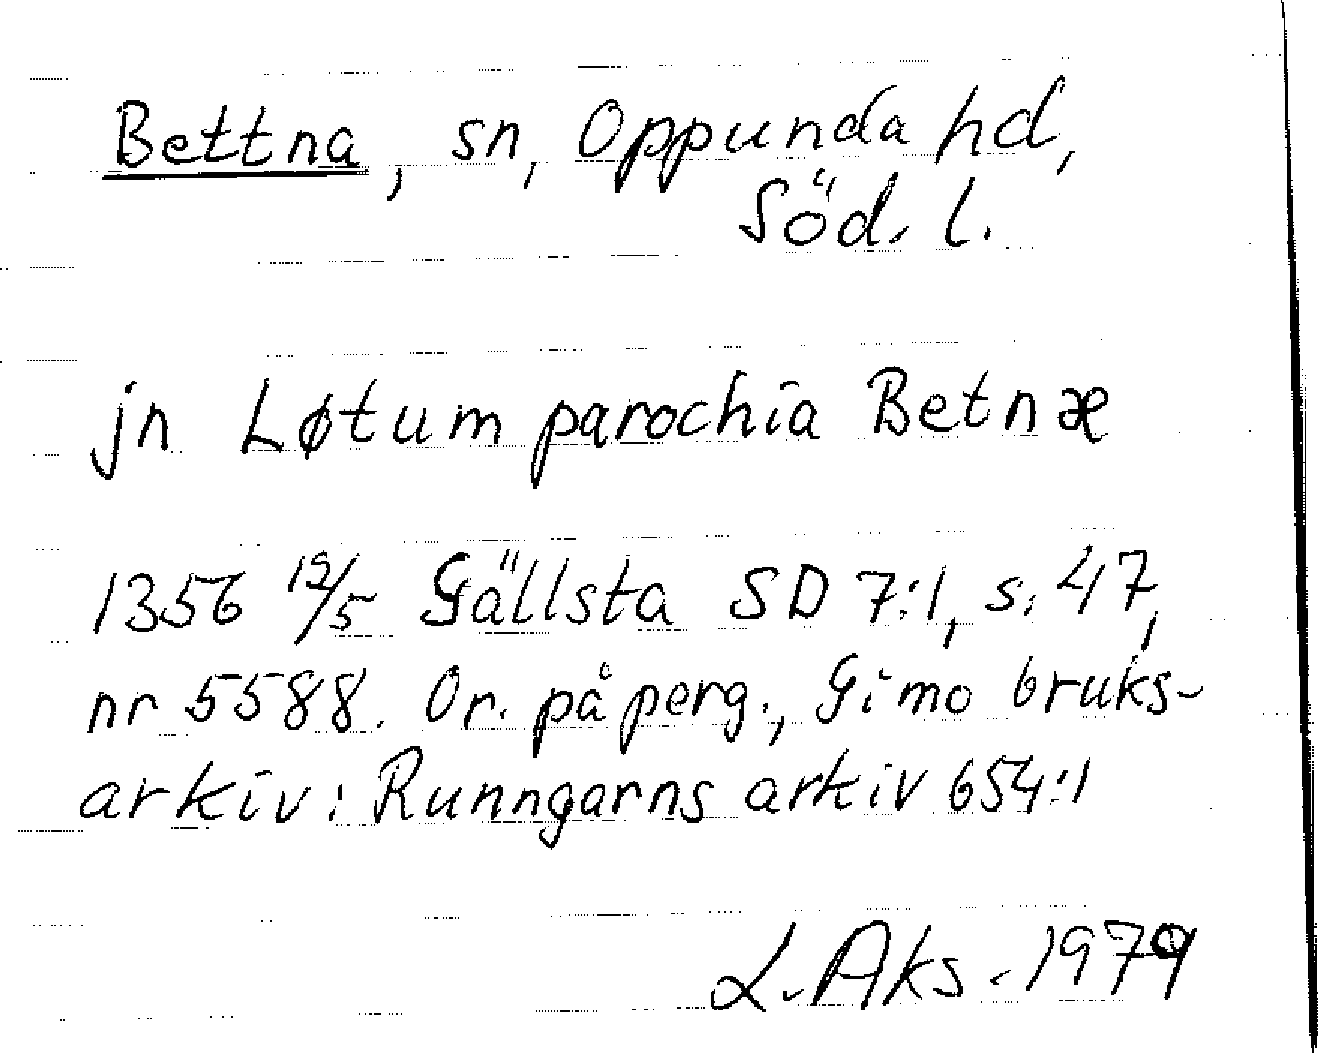 Bettna, sn, Oppunda hd,
Söd. l.
jn Løtum parochia Betnæ
1356 19/5 Gällsta SD 7:1, s. 47,
nr 5588. Or. på perg., Gimo bruks-
arkiv: Runngarns arkiv 654:1
L. Aks. 1979